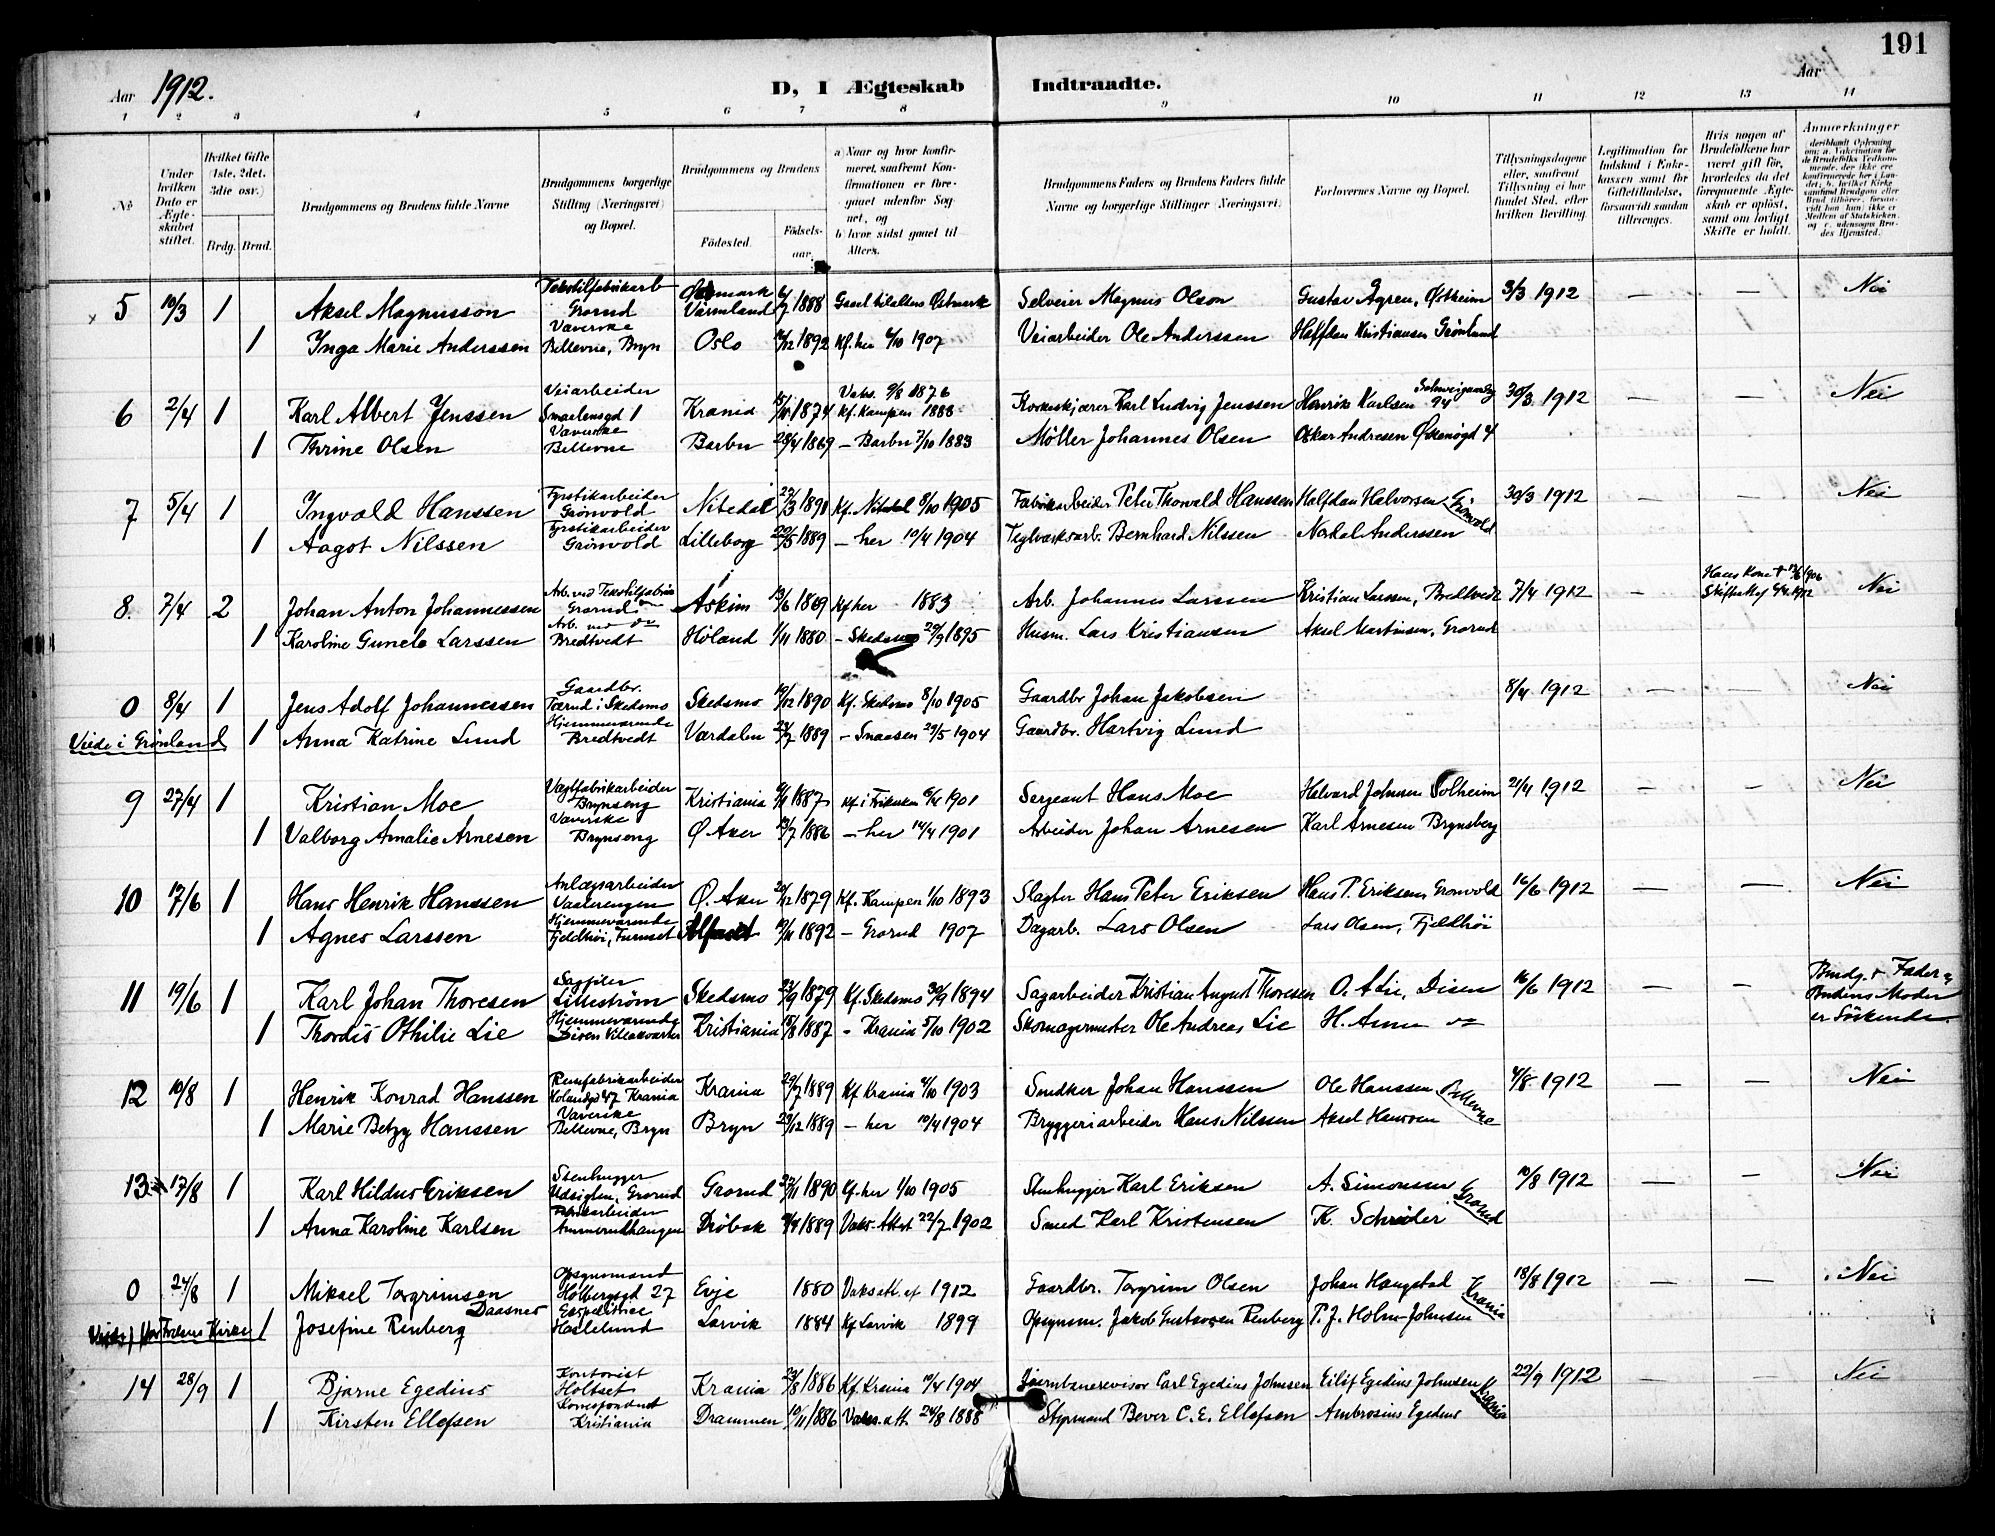 191
Aar 1912.
D, I Ægteskab Indtraadte.
Aar
1 2 3 4 5 6 7 8 9 10 11 12 13 14
No.
Under hvilken Dato er Ægteskabet stiftet.
Hvilket Gifte (1ste, 2det, 3die osv.)
Brdg. Brud.
Brudgommens og Brudens fulde Navne
Brudgommens borgerlige Stilling (Næringsvei) og Bopæl.
Brudgommens og Brudens
Fødested.
Fødselsaar.
a) Naar og hvor konfirmeret, saafremt Konfirmationen er foregaaet udenfor Sognet, og
b) hvor sidst gaaet til Alters.
Brudgommens Faders og Brudens Faders fulde Navne og borgerlige Stillinger (Næringsvei)
Forlovernes Navne og Bopæl.
Tillysningsdagene eller, saafremt Tillysning ei har fundet Sted, efter hvilken Bevilling.
Legitimation for Indskud i Enkekassen samt for Giftetilladelse, forsaavidt saadan tiltrænges.
Hvis nogen af Brudefolkene har været gift før, hvorledes da det foregaaende Ægteskab er opløst, samt om lovligt Skifte er holdt.
Anmærkninger
5 10/3 1 Aksel Magnusson Tekstilfabrikarb Grorud Värmland 1888 Selveier Magnus Olson Gustav Ågren, Østheim 3/3 1912 — — Nei
1 Inga Marie Anderssen Væverske Bellevue, Bryn Oslo 1892 Kf. her 1907 Veiarbeider Ole Anderssen Halfdan Kristiansen Grønlund
6 2/4 1 Karl Albert Jenssen Veiarbeider Smaalensgd 1 Krania 1874 Vaks. 9/8 1876 Kf. Kampen 1888 Karl Ludvig Jenssen Henrik Karlsen Schweigaardsg 94 30/3 1912 — — Nei
1 Thrine Olsen Væverske Bellevue Barbu 28/4 1869 — Barbu 7/10 1883 Møller Johannes Olsen Oskar Andresen Økenøgd 4
7 5/4 1 Ingvald Hanssen Fyrstikarbeider Grønvold Nitedal Kf. Nitedal 8/10 1905 Fabrikarbeider Peter Thorvald Hanssen Halfdan Halvorsen Grønvold 30/3 1912 — — Nei
1 Aagot Nilssen Fyrstikarbeider Grønvold Lilleborg 22/5 1889 — her 10/4 1904 Teglverksarb. Bernhard Nilssen Anderssen
8. 7/4 2 Johan Anton Johannessen Arb. ved Tekstilfabrik Grorud Askim 13/6 1869 Kf her 1883 Arb. Johannes Larssen Kristian Larssen, Bredtvedt 7/4 1912 — Hans Kone † 1906 Nei
1 Karoline Gunela Larssen Arb. ved do Bredtvedt Høland 1/11 1880 — Skedsmo 29/9 1895 Husm. Lars Kristiansen Aksel Martinsen, Grorud
0 8/4 1 Jens Adolf Johannessen Gaardbr. Tærud i Skedsmo Skedsmo 19/12 1890 Kf. Skedsmo 8/10 1905 Gaardbr Johan Jakobsen 8/4 1912 — — Nei
Viede i Grønland 1 Anna Katrine Lund Hjemmeværende Bredtvedt Værdalen 23/7 1889 — Snaasen 29/5 1904 Gaardbr. Hartvig Lund
9 27/4 1 Kristian Moe Brynseng Kristiania 1887 Kf i Frikirken 1901 Sergeant Hans Moe Halvard Johnsen Solheim 21/4 1912 — — Nei
1 Valborg Amalie Arnesen Væverske Brynseng Ø Aker 13/7 1886 — her 14/4 1901 Arbeider Johan Arnesen Karl Arnesen Brynsberg
10 17/6 1 Hans Henrik Hanssen Anlægsarbeider Vaalerengen Ø. Aker 1879 Kf. Kampen 1/10 1893 Slagter Hans Peter Eriksen Hans P. Eriksen, Grønvold 16/6 1912 — — Nei
1 Agnes Larssen Hjemmeværende Fjeldhøi, Furuset Alfaset 1892 — Grorud 1907 Dagarb. Lars Olsen Lars Olsen, Fjeldhøi
11 19/6 1 Karl Johan Thoresen Sagfiler Lillestrøm Skedsmo 23/9 1879 Kf. Skedsmo 30/9 1894 Sagarbeider Kristian August Thoresen O. A Lie, Disen 16/6 1912 — — Brudg. † Fader og Brudens Moder er Søskende.
1 Thordis Othilie Lie Hjemmeværende Disen Kristiania 15/8 1887 — Krania 5/10 1902 Skomagermester Ole Andreas Lie H. do
12 10/8 1 Henrik Konrad Hanssen 47 Krania Krania 29/7 1889 Kf Krania 4/10 1903 Snedker Johan Hanssen Ole Hanssen Bellevue 4/8 1912 — — Nei
1 Marie Betzy Hanssen Væverske Bellevue, Bryn Bryn 23/12 1889 — her 10/4 1904 Bryggeriarbeider Hans Nilssen Aksel Hanssen
13 17/8 1 Karl Hildus Eriksen Stenhugger Udsigten, Grorud Grorud 1890 Kf. her 1/10 1905 Stenhugger Karl Eriksen A. Simonsen Grorud 10/8 1912 — — Nei
1 Anna Karoline Karlsen Ammerudhaugen Drøbak 1889 Vaks. Attest 22/7 1902 Smed Karl Kristensen K. Schrøder
0 24/8 1 Mikael Torgrimsen Daasnes Opsynsmand Holbergsgd 27 Evje 1880 Vaksatt. af 1912 Gaardbr. Torgrim Olsen Johan Haugstad Krania 18/8 1912 — — Nei
1 Josefine Renberg Haslelund Larvik 1884 Kf Larvik 1899 Opsynsm. Jakob Gustavsen Renberg P. J. Holm-Johnsen
14 28/9 1 Bjarne Egedius Kontorist Holtset Krania 23/8 1886 Kf. Krania 10/4 1904 Jernbanerevisor Carl Egedius Johnsen Eilif Egedius Johnsen Krania 22/9 1912 — — Nei
1 Kirsten Ellefsen Korrespondent Kristiania Drammen 10/11 1886 Vaks. att. 24/8 1888 Styrmand Bever C. E. Ellefsen Ambrosius Egedius